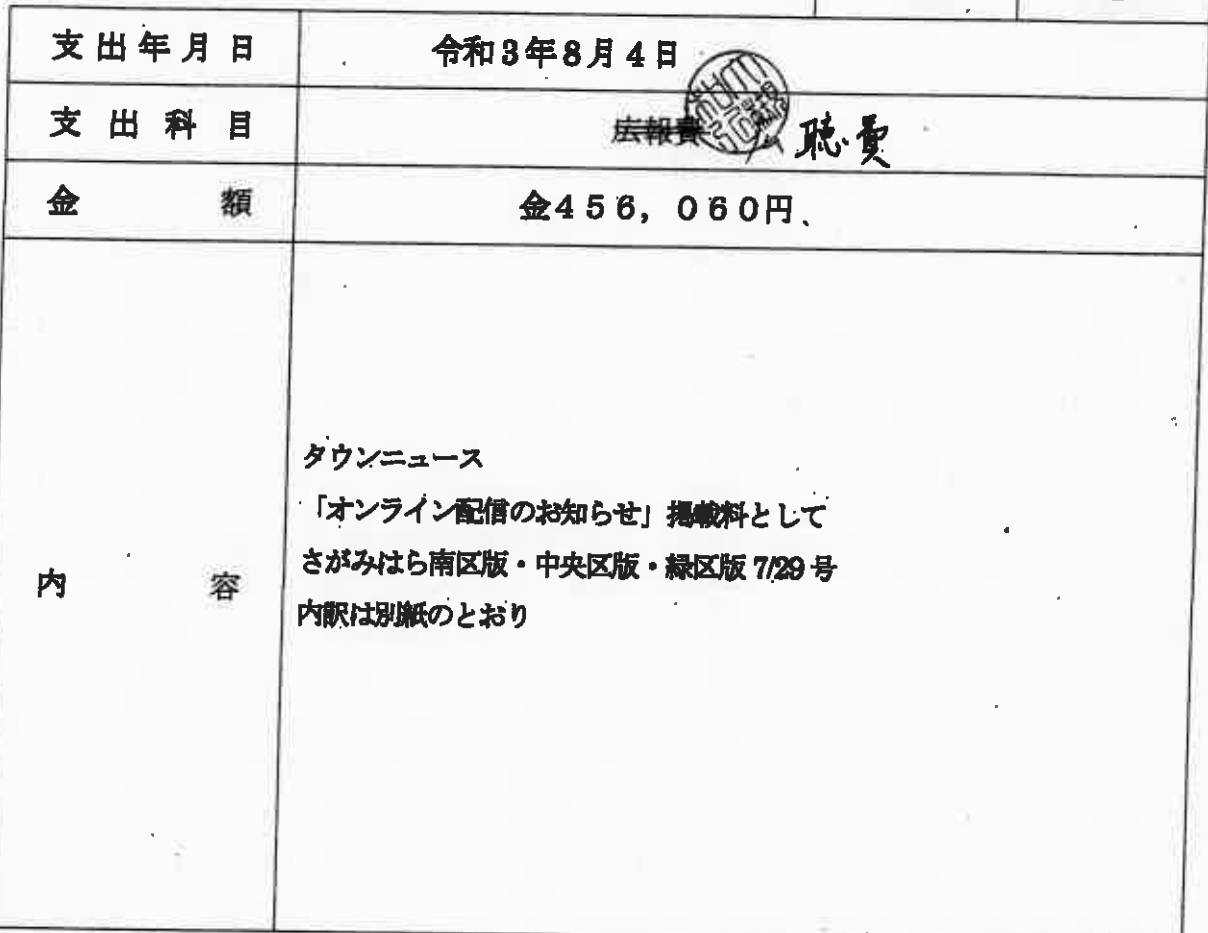 支出年月日 令和3年8月4日
支出科目 広報費 聴費
金額 金456,060円
内容
タウンニュース
「オンライン配信のお知らせ」掲載料として
さがみはら南区版・中央区版・緑区版 7/29号
内訳は別紙のとおり